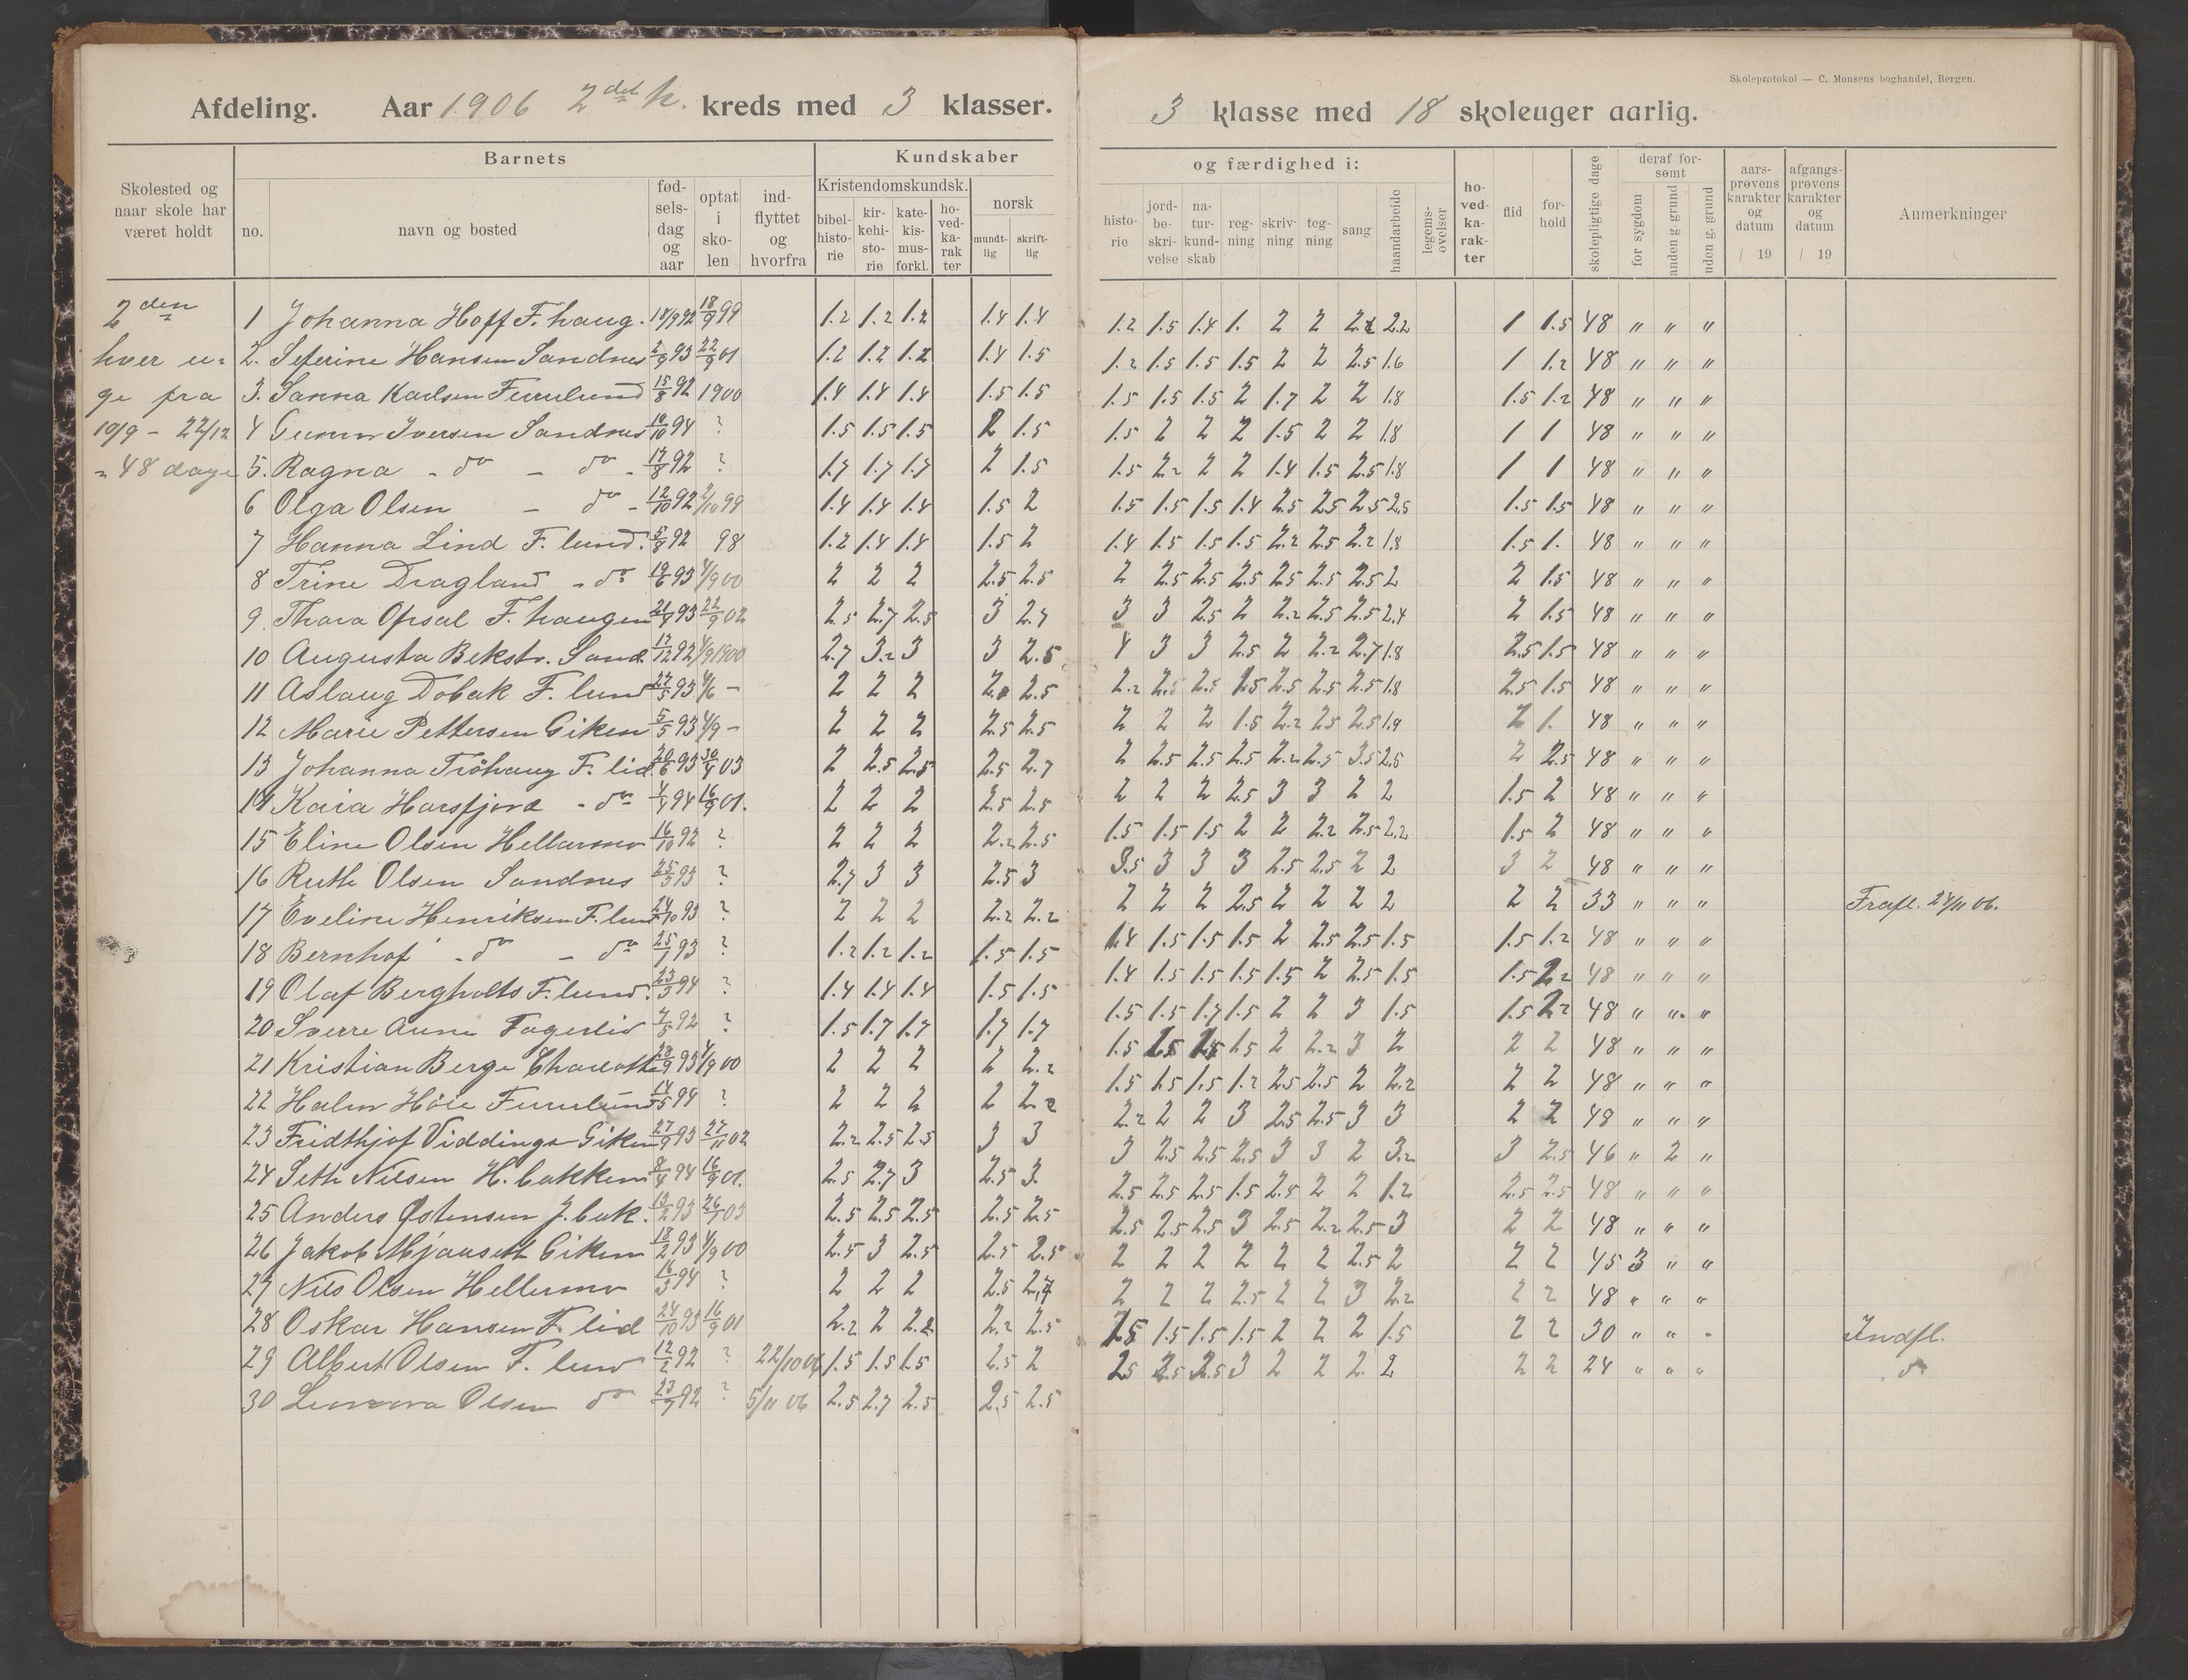 Skoleprotokol — C. Monsens boghandel, Bergen.
Afdeling. Aar 1906 2det h. kreds med 3 klasser. 3 klasse med 18 skoleuger aarlig.
Barnets Kundskaber og færdighed i:
Skolested og naar skole har været holdt
no. navn og bosted fødselsdag og aar optat i skolen indflyttet og hvorfra
Kristendomskundsk. bibelhistorie kirkehistorie katekismusforkl. hovedkarakter
norsk mundtlig skriftlig
historie jordbeskrivelse naturkundskab regning skrivning tegning sang haandarbeide legemsøvelser
hovedkarakter flid forhold skolepligtige dage
deraf forsømt for sygdom anden g grund uden g. grund
aarsprøvens karakter og datum / 19
afgangsprøvens karakter og datum / 19
Anmerkninger
2den
hver u-
ge fra
10/9 - 22/12
= 48 dage
1 Johanna Hoff F.haug. 18/9 92 18/9 99 1.2 1.2 1.2 1.4 1.4 1.2 1.5 1.4 1. 2 2 2.2 2.2 1 1.5 48 " " "
2. Seferine Hansen Sandnes 2/9 93 22/9 01 1.2 1.2 1.2 1.4 1.5 1.2 1.5 1.5 1.5 2 2 2.5 1.6 1 1.2 48 " " "
3. Sanna Karlsen Furulund 15/8 92 1900 1.4 1.4 1.4 1.5 1.5 1.5 1.5 1.5 2 1.7 2 2 1.8 1.5 1.2 48 " " "
4 Gunn Iversen Sandnes 10/10 94 ? 1.5 1.5 1.5 2 1.5 1.5 2 2 2 1.5 2 2 1.8 1 1 48 " " "
5. Ragna - do - do - 17/8 92 ? 1.7 1.7 1.7 2 1.5 1.5 2.2 2 2 1.4 1.5 2.5 1.8 1 1 48 " " "
6 Olga Olsen - do - 12/10 92 2/10 99 1.4 1.4 1.4 1.5 2 1.5 1.5 1.5 1.4 2.5 2.5 2.5 2.5 1.5 1.5 48 " " "
7 Hanna Lind F. lund. 5/8 92 98 1.2 1.4 1.4 1.5 2 1.4 1.5 1.5 1.5 2.2 2.5 2.2 1.8 1.5 1. 48 " " "
8 Trine Dragland - do 19/6 93 4/9 00 2 2 2 2.5 2.5 2 2.5 2.5 2.5 2.5 2.5 2.5 2 2 1.5 48 " " "
9. Thora Opsal F. haugen 21/8 93 22/9 02 2.5 2.7 2.5 3 2.7 3 3 2.5 2 2.2 2.5 2.5 2.4 2 1.5 48 " " "
10 Augusta Bekstr. Sand. 17/12 92 4/9 1900 2.7 3.2 3 3 2.5 4 3 3 2.5 2 2.2 2.7 1.8 2.5 1.5 48 " " "
11 Aslaug Dobak F. lund 27/5 93 4/6 - 2 2 2 2. 2.5 2.2 2.5 2.5 1.5 2.5 2.5 2.5 1.8 2.5 1.5 48 " " "
12 Marie Pettersen Giken 5/5 93 4/9 - 2 2 2 2.5 2.5 2 2 2 1.5 2.2 2.5 2.5 1.9 2 1. 48 " " "
13 Johanna Tröhaug F. lid. 20/6 93 30/4 03 2 2.5 2.5 2.5 2.7 2 2.5 2.5 2.5 2.2 2.5 3.5 2.5 2 2.5 48 " " "
14 Kaia Harsfjord - do 4/4 94 16/9 01. 2 2 2 2.5 2.5 2 2 2 2.5 3 3 2 2 1.5 2 48 " " "
15 Eline Olsen Hellarmo 16/10 92 ? 2 2 2 2.2 2.5 1.5 1.5 1.5 2 2 2.2 2.5 2.2 1.5 2 48 " " "
16 Ruth Olsen Sandnes 25/3 93 ? 2.7 3 3 2.5 3 3.5 3 3 3 2.5 2.5 2 2 3 2 48 " " "
17 Eveline Henriksen F. lund 24/10 93 ? 2 2 2 2.2 2.2 2 2 2 2.5 2 2 2 2 2 2 33 " " " Trafl. 24/11 06.
18 Bernhof - do - do 25/1 93 ? 1.2 1.2 1.2 1.5 1.5 1.4 1.5 1.5 1.5 2 2.5 2.5 1.5 1.5 1.2 48 " " "
19 Olaf Bergholts F. lund. 23/3 94 ? 1.4 1.4 1.4 1.5 1.5 1.4 1.5 1.5 1.5 1.5 2 2.5 1.5 1.5 2.2 48 " " "
20 Sverre Aune Fagerlid 7/5 92 ? 1.5 1.7 1.7 1.7 1.7 1.5 1.5 1.7 1.5 2 2 3 1.5 1.5 2.2 48 " " "
21 Kristian Berge Charlotte 28/9 93 4/9 00 2 2 2 2 2.2 1.5 1.5 1.5 1.5 2 2.2 3 2 2 2 48 " " "
22 Halm Höie Furulund 14/5 94 ? 2 2 2 2 2.2 1.5 1.5 1.5 1.2 2.5 2.5 2 2.2 2 2 48 " " "
23 Fridthjof Viddings Giken 27/9 93 27/11 02 2.2 2.5 2.5 3 3 2.2 2 2 3 2.5 2.5 3 3 2 2 48 " " "
24 Seth Nilsen H. bakken 8/4 94 16/9 01. 2.5 2.7 3 2.5 3. 3 2.5 2.5 2.5 3 3 2 3.2 3 2.5 46 " 2 "
25 Anders Østensen J. bak. 19/2 93 26/1 03 2.5 2.5 2.5 2.5 2.5 2.5 2.5 2.5 1.5 2.5 2 2 1.2 2.5 2.5 48 " " "
26 Jakob Mjaaseth Giken 18/2 93 4/9 00 2.5 3 2.5 2.5 2.5 2.5 2.5 2.5 3 2.5 2.2 2.5 3 2 2 48 " " "
27 Nils Olsen Hellermo 16/3 94 ? 2 2 2 2.5 2.7 2 2 2 2 2 2 2.5 2 2 2 45 3 " "
28 Oskar Hansen F. lid 24/10 93 16/9 01 2.2 2 2.2 2.2 2.5 2 2 2 2.5 2 2 3 2.2 2 2 48 " " "
29 Albert Olsen F. lund 12/2 92 ? 22/10 06 1.5 1.5 1.5 2.5 2 1.5 1.5 1.5 1.5 2 2 2 1.5 2 2 30 " " " Indfl.
30 Olsen do 23/7 92 ? 5/11 06 2.5 2.7 2.5 2.5 2.5 2.5 2.5 2.5 3 2 2 2 2 2 2 24 " " " do